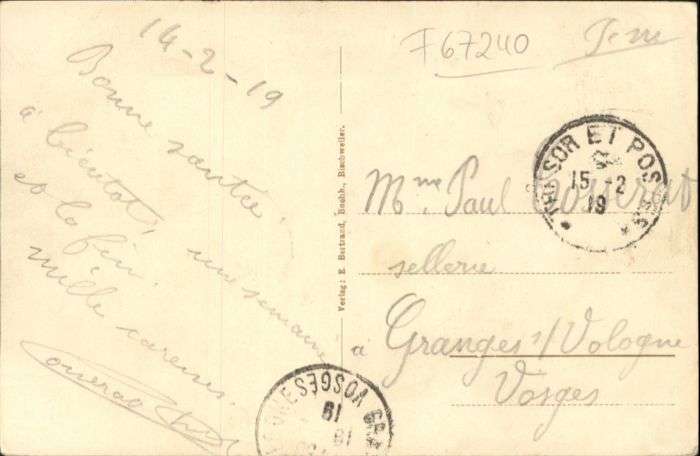 14-2-19
Bonne santée,
à bientôt, une semaine
et la fin.
mille caresses.
Verlag: E. Bertrand, Buchh., Bischweiler.
F67240
TRESOR ET POSTES
15 2
19
Mme Paul
sellerie
à Granges s/ Vologne
Vosges
GRANGES VOSGES
19